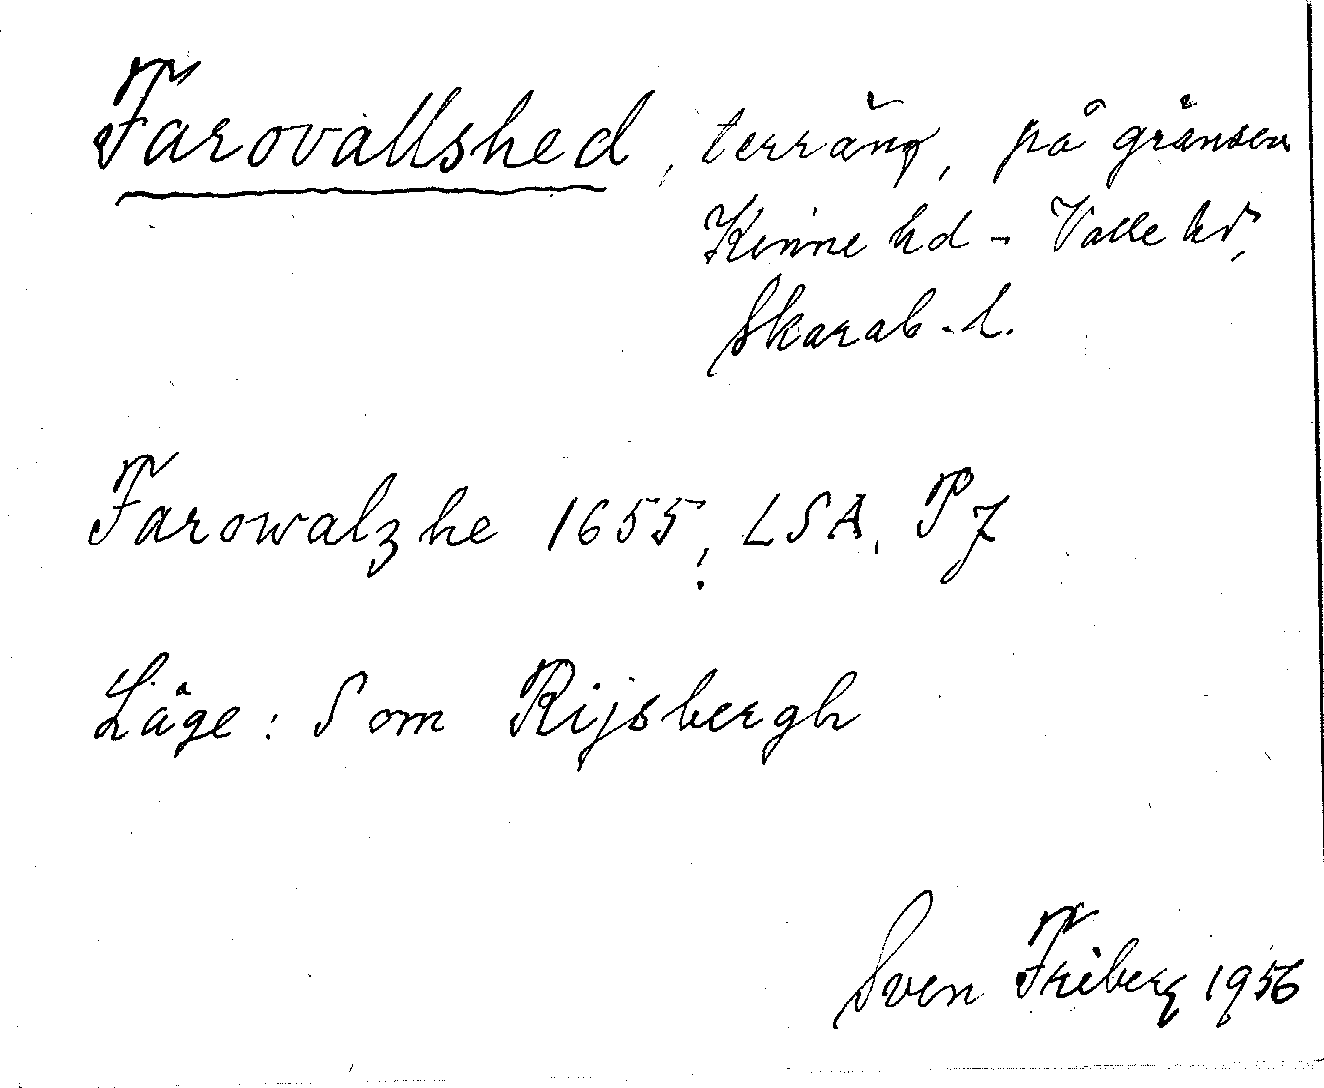 Farovallshed, terräng, på gränsen
Kinne hd - Valle hd,
Skarab. l.
Farowalzhe 1655, LSA, P7
Läge: Som Rijsbergh
Sven Friberg 1956